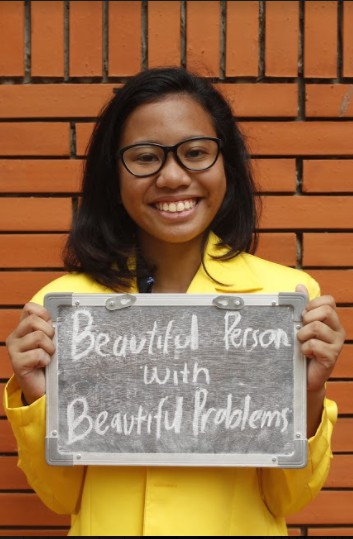 Beautiful Person
with
Beautiful Problems